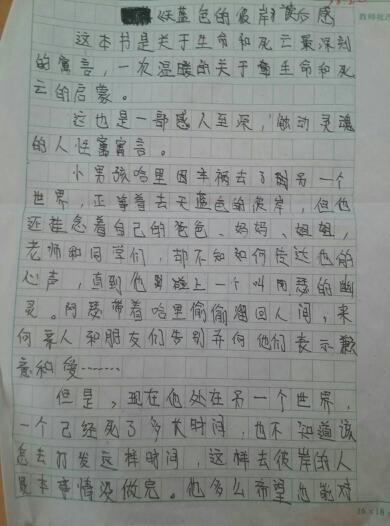 《天蓝色的彼岸》读后感
这本书是关于生命和死亡最深刻
的寓言，一次温暖的关于生命和死
亡的启蒙。
这也是一部感人至深，触动灵魂
的人性寓言。
小男孩哈里因车祸去了另一个
世界，正等着去天蓝色的彼岸，但他
还挂念着自己的爸爸、妈妈、姐姐，
老师和同学们，却不知如何传达他的
心声，直到他碰上一个叫阿瑟的幽
灵。阿瑟带着哈里偷偷溜回人间，来
向亲人和朋友们告别并向他们表示歉
意和爱……
但是，现在他处在另一个世界，
一个已经死了多长时间，也不知道该
怎去打发这样时间，这样去彼岸的人
是本事情没做完。他多么希望也能对
16×18